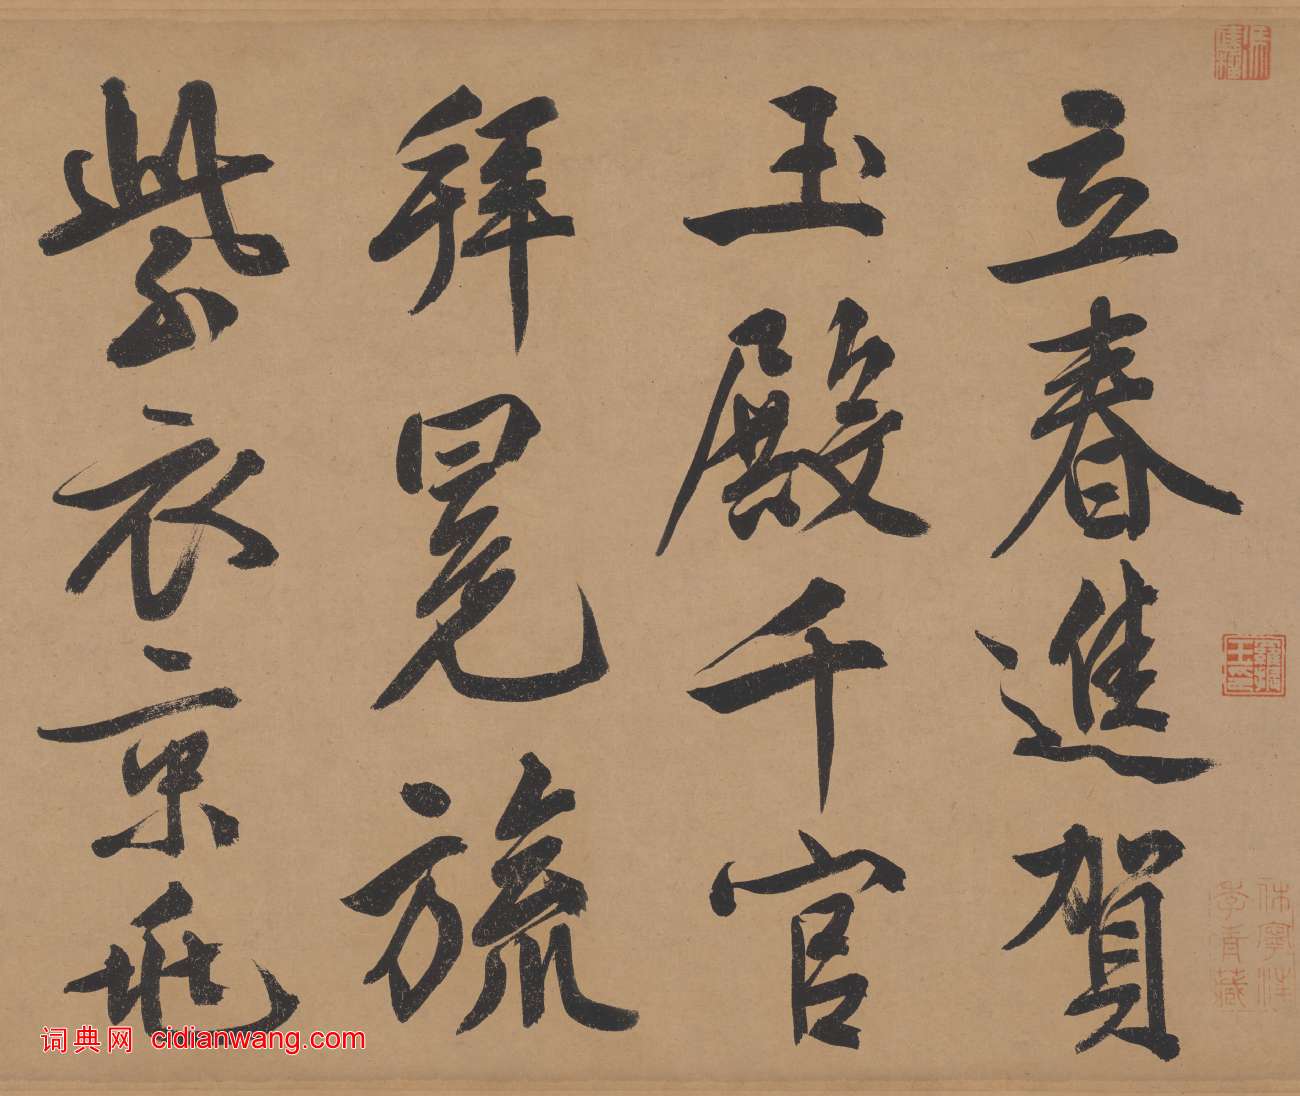 立春進賀
玉殿千官
拜冕旒
紫衣京兆
休寧汪
季青藏
词典网 cidianwang.com